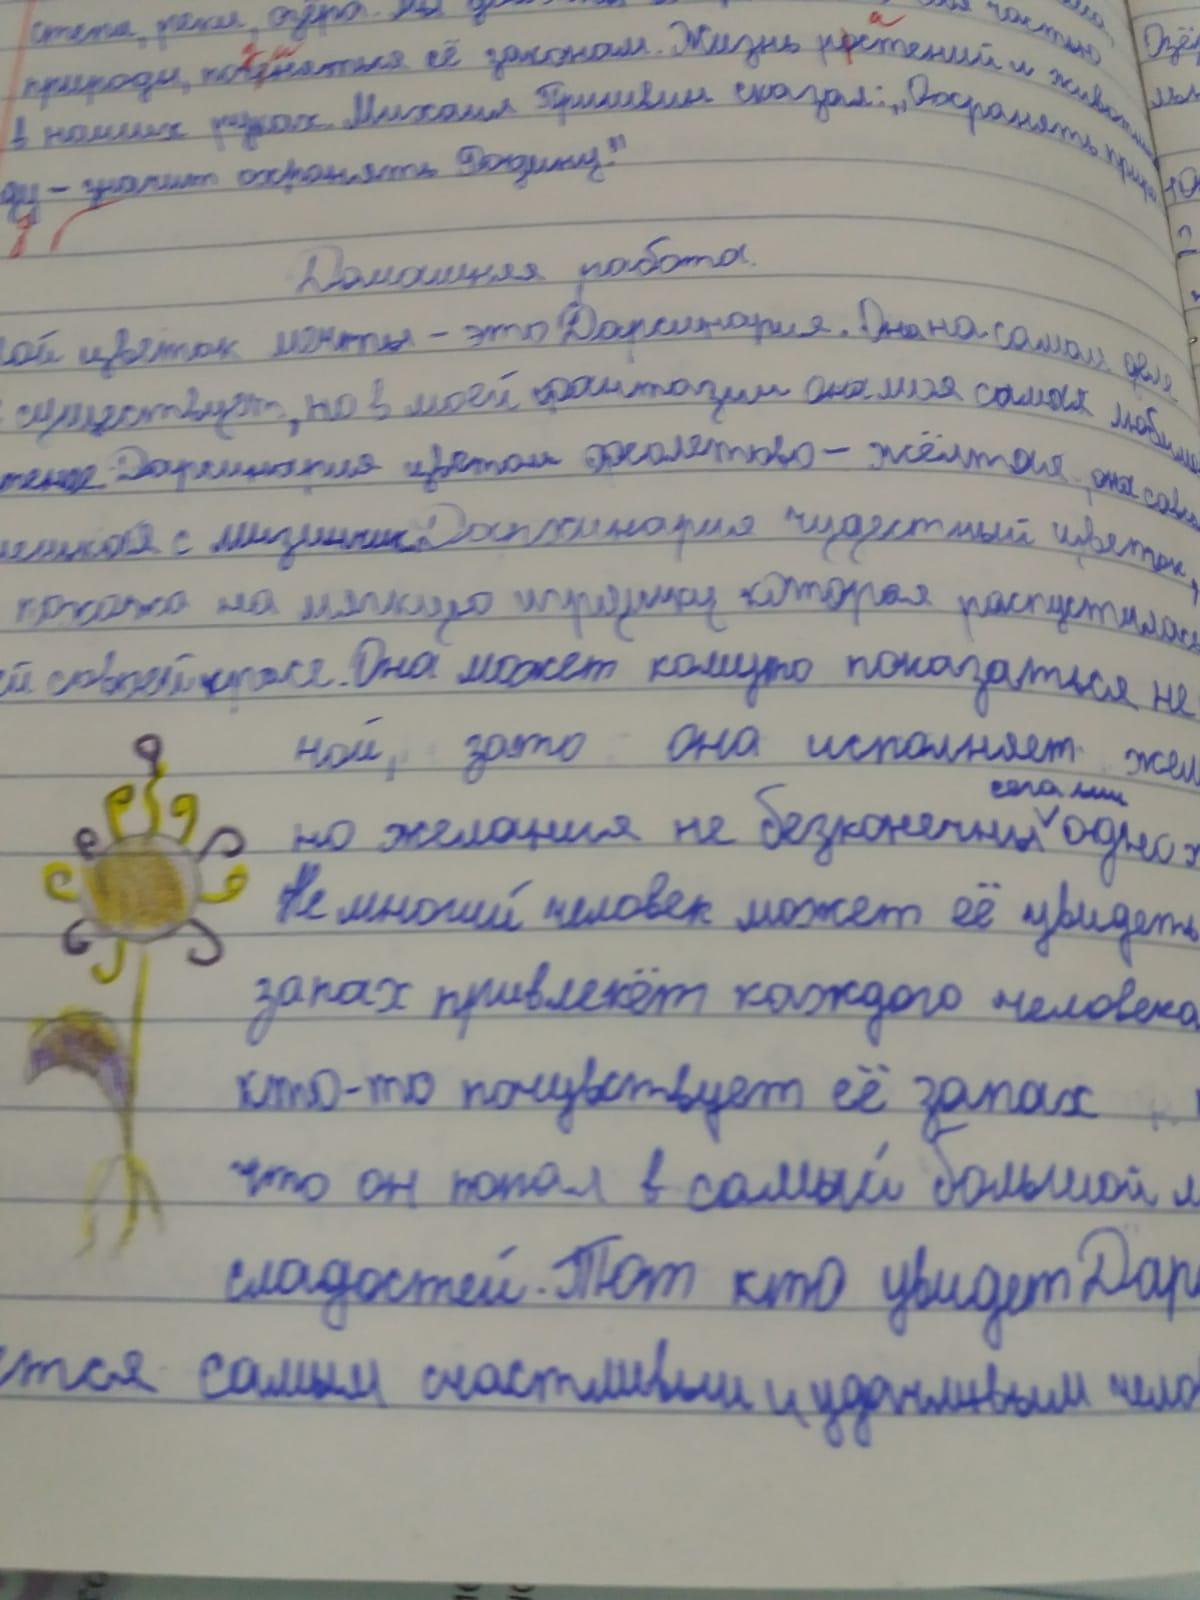 степи, реки, озёра.
природы, подчиняться её законам. Жизнь растений и животных
в наших руках. Михаил Пришвин сказал: „Охранять приро
ду – значит охранять Родину."
Домашняя работа.
ой цветок мечты – это Дарсинария. Она на самом деле
существует, но в моей фантазии она моя самая любимая
Дарсинария цветом фиолетово – жёлтая, она
с мизинчик. Дарсинария чудестный цветок,
похожа на мягкую игрушку которая распустилась
ей совоей красе. Она может комуто показаться не
ной, зато она исполняет жел
сегалии
но желания не безконечны одно ж
Не многий человек может её увидеть
запах привлекёт каждого человека
кто-то почувствует её запах
что он попал в самый большой м
сладостей. Тот кто увидет Дарс
ется самым счастливым и удачливым чело
Озёр